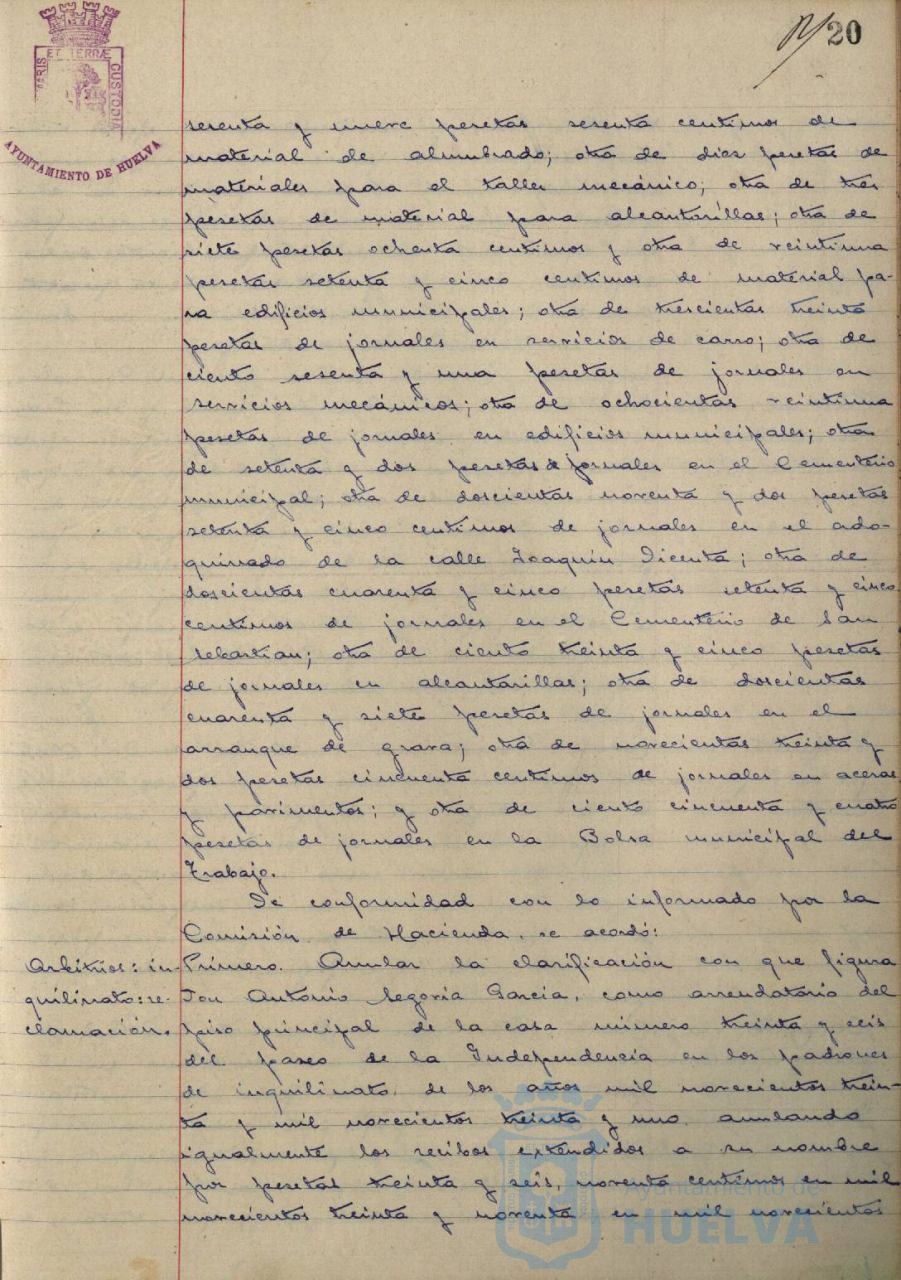 20
PORTUS MARIS ET TERRÆ CUSTODIA
AYUNTAMIENTO DE HUELVA
sesenta y nueve pesetas sesenta centimos de
material de almubrado; otra de diez pesetas de
materiales para el taller mecánico; otra de tres
pesetas de material para alcantarillas; otra de
siete pesetas ochenta centimos y otra de veintiuna
pesetas setenta y cinco centimos de material pa-
ra edificios municipales; otra de trescientas treinta
pesetas de jornales en servicios de carro; otra de
ciento sesenta y una pesetas de jornales en
servicios mecánicos; otra de ochocientas veintiuna
pesetas de jornales en edificios municipales; otra
de setenta y dos pesetas de jornales en el Cementerio
municipal; otra de doscientas noventa y dos pesetas
setenta y cinco centimos de jornales en el ado-
quinado de la calle Joaquín Dicenta; otra de
doscientas cuarenta y cinco pesetas setenta y cinco
centimos de jornales en el Cementerio de San
Sebastian; otra de ciento treinta y cinco pesetas
de jornales en alcantarillas; otra de doscientas
cuarenta y siete pesetas de jornales en el
arranque de grava; otra de novecientas treinta y
dos pesetas cincuenta centimos de jornales en aceras
y pavimentos; y otra de ciento cincuenta y cuatro
pesetas de jornales en la Bolsa municipal del
Trabajo.
De conformidad con lo informado por la
Comisión de Hacienda, se acordó:
Arbitrios: in-
quilinato: re-
clamación.
Primero. Anular la clasificación con que figura
Don Antonio Segovia Garcia, como arrendatario del
piso principal de la casa número treinta y seis
del paseo de la Independencia en los padrones
de inquilinato de los años mil novecientos trein-
ta y mil novecientos treinta y uno anulando
igualmente los recibos extendidos a su nombre
por pesetas treinta y seis, noventa centimos en mil
novecientos treinta y noventa en mil novecientos
Ayuntamiento de
HUELVA